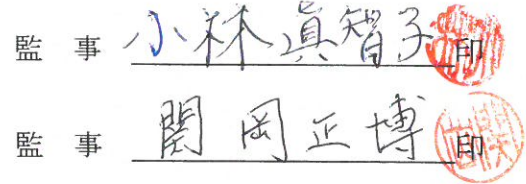 監 事 小林眞智子 印
監 事 関岡正博 印